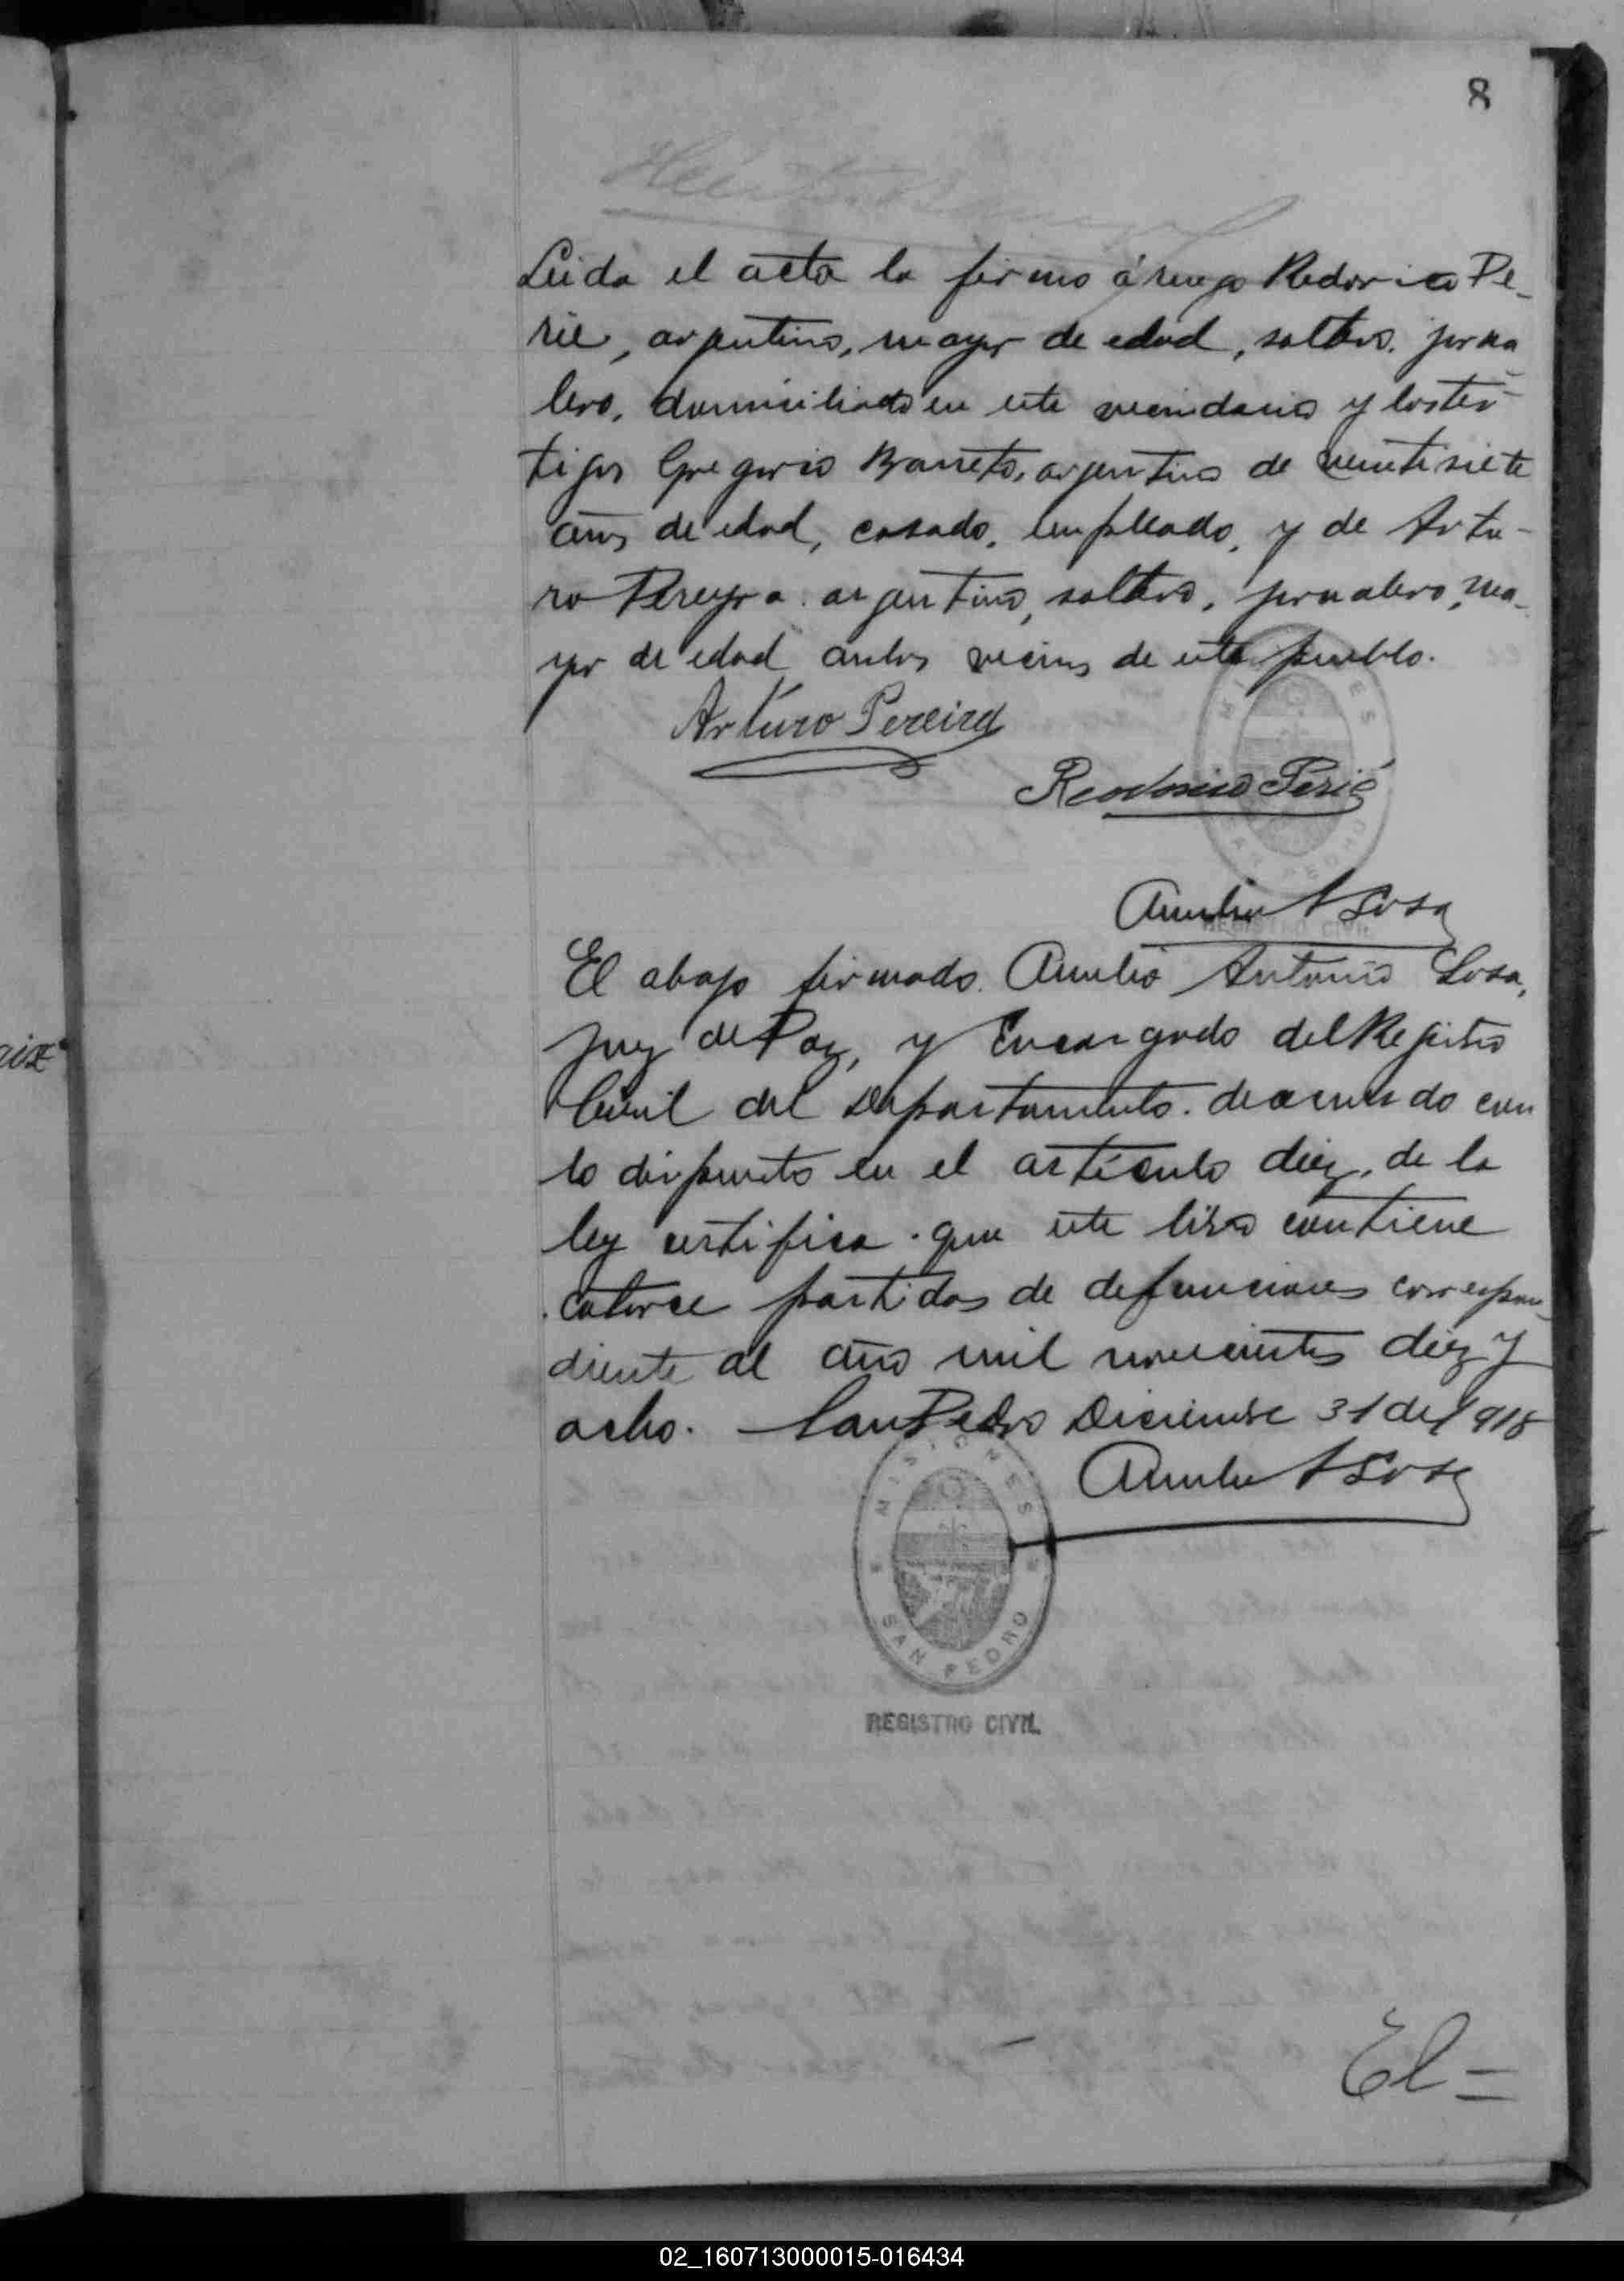 8
Leida el acta la firmo á ruego Redorico Pe-
rié, argentino, mayor de edad, soltero, jorna
lero, domiciliado en este vecindario y los tes-
tigos Gregorio Barreto, argentino de veintisiete
años de edad, casado, empleado, y de Artu-
ro Pereyra argentino, soltero, jornalero, ma-
yor de edad ambos vecinos de este pueblo.
Arturo Pereira
Redorico Perié
MISIONES
SAN PEDRO
REGISTRO CIVIL
Aurelio A Sosa
El abajo firmado Aurelio Antonio Sosa,
Juez de Paz, y Encargado del Registro
Civil del Departamento de acuerdo con
lo dispuesto en el artículo diez, de la
ley certifica que este libro contiene
catorce partidas de defunciones correspon-
diente al año mil novecientos diez y
ocho. San Pedro Diciembre 31 de 1918
Aurelio A Sosa
MISIONES
SAN PEDRO
REGISTRO CIVIL
El=
02_160713000015-016434